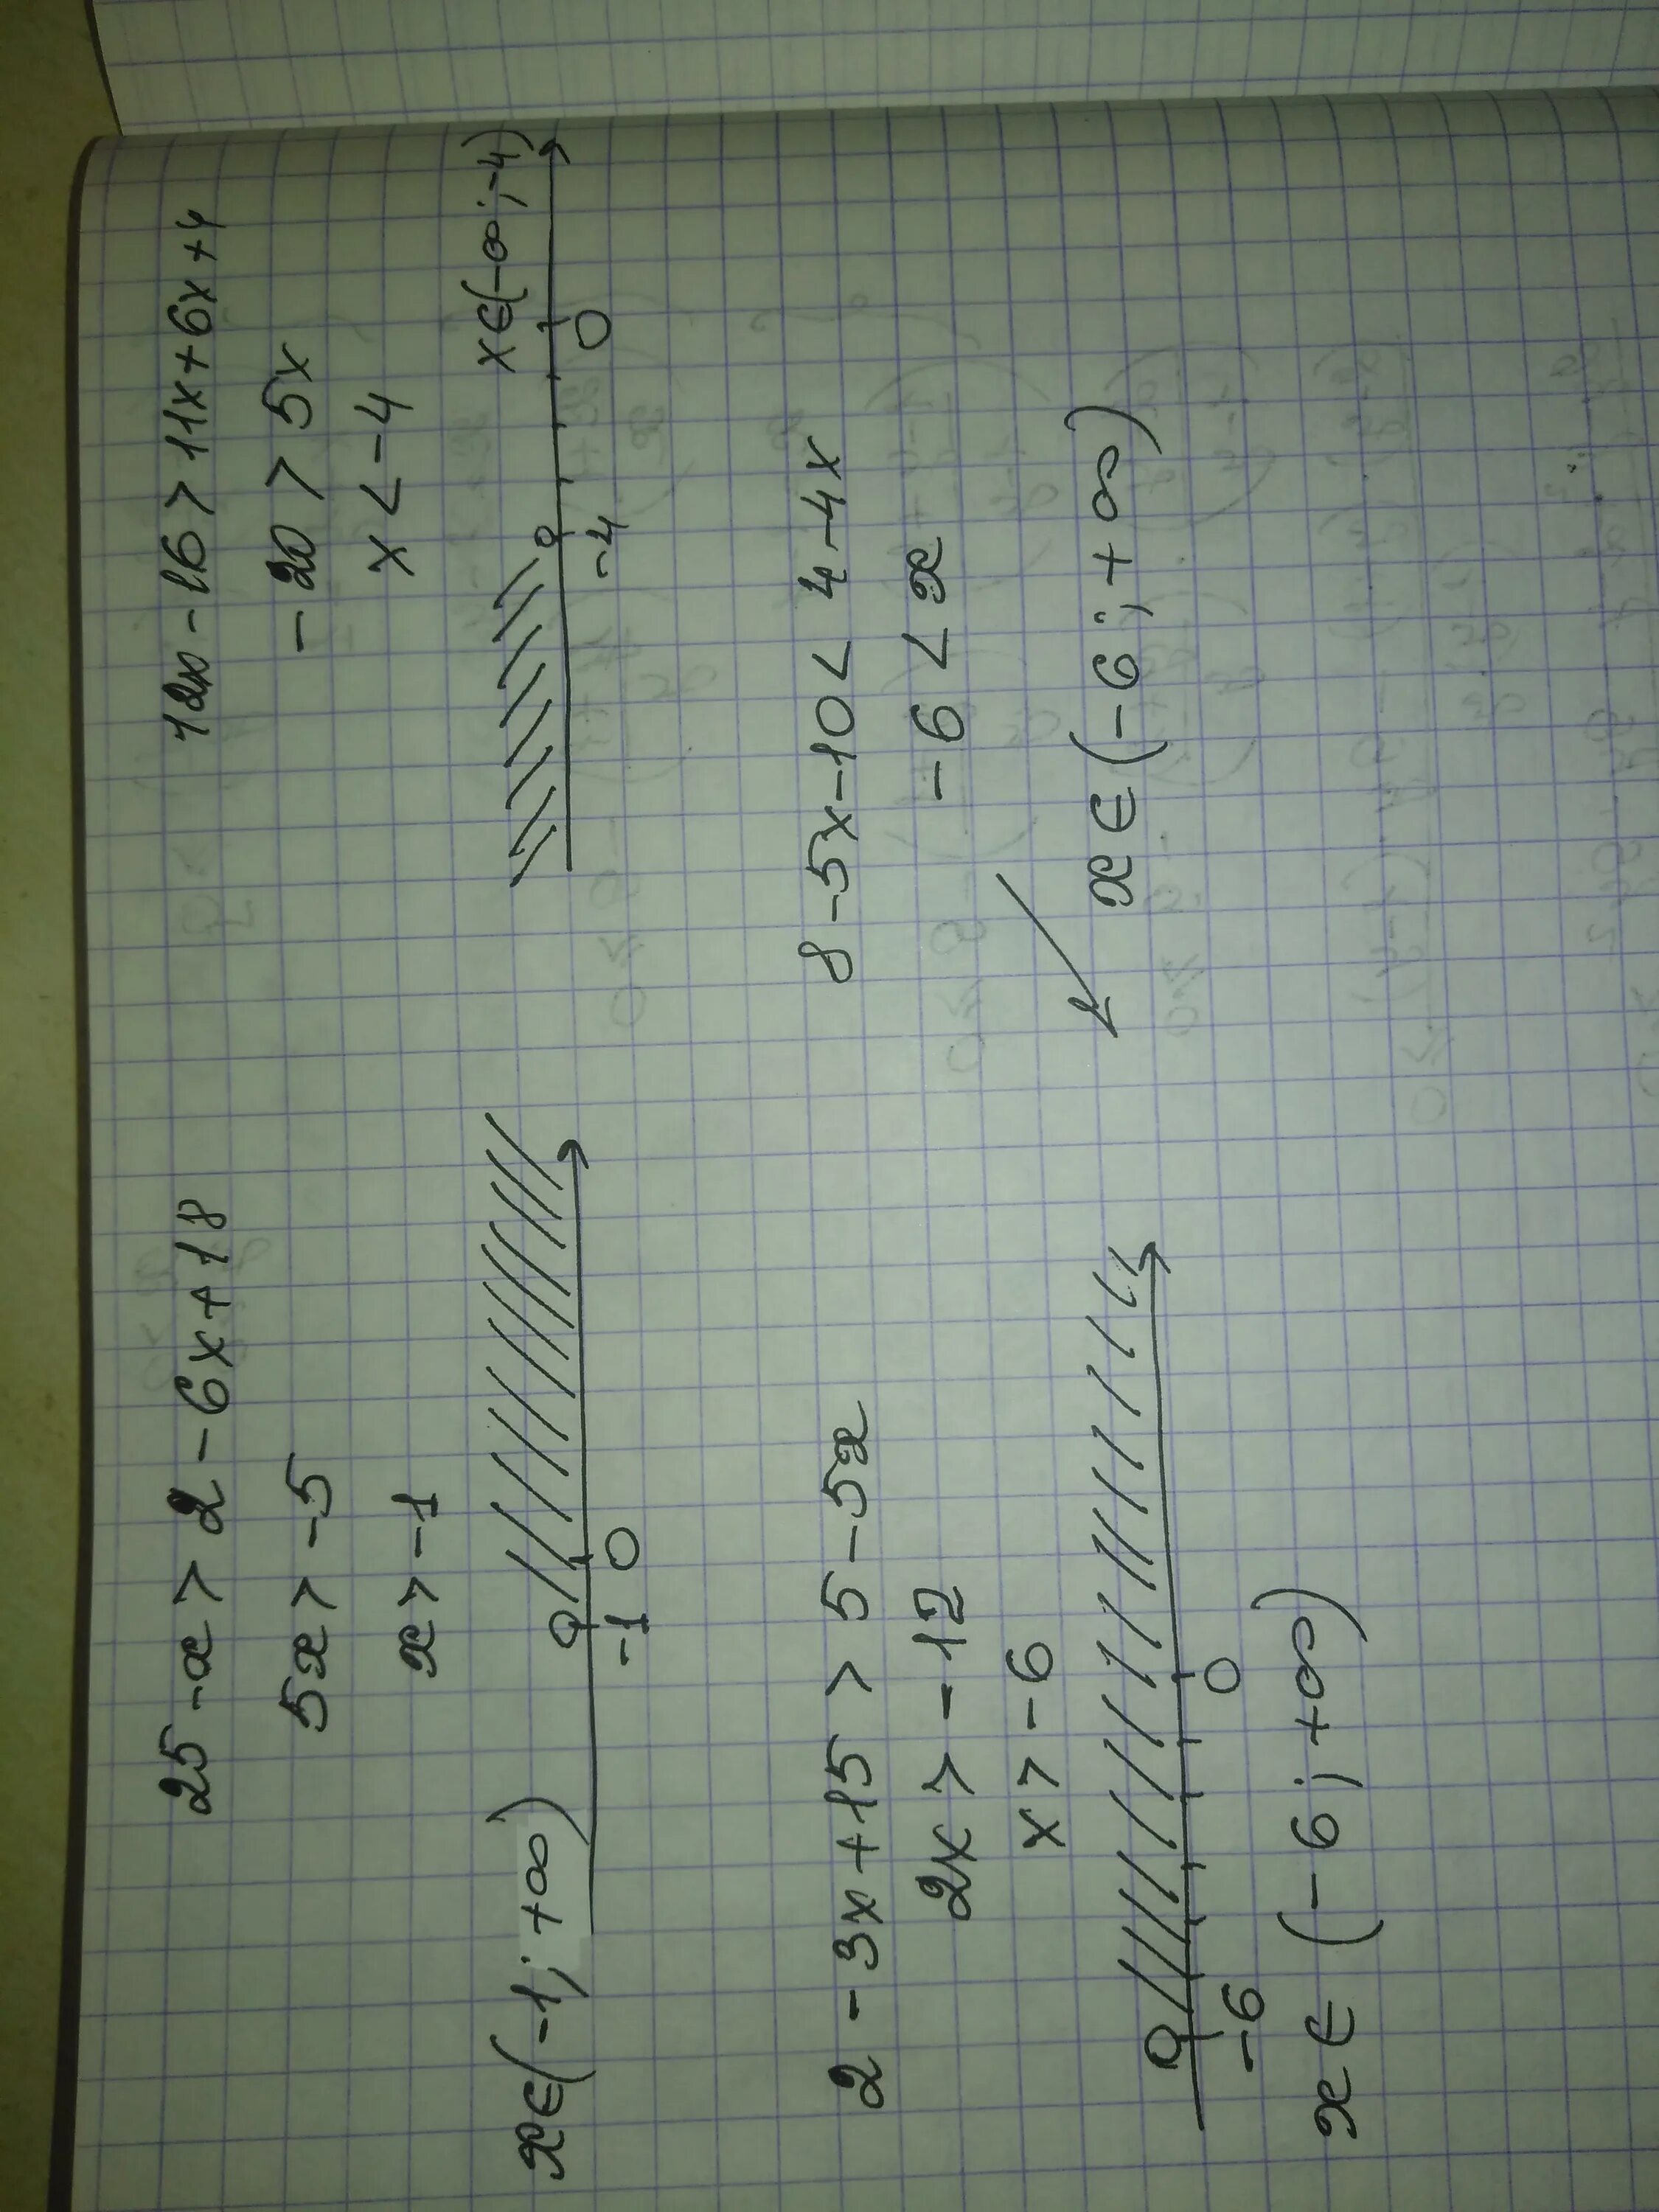 25-x > 2-6x+18
5x > -5
x > -1
x∈(-1; +∞)
-1 0
12x-16 > 11x+6x+4
-20 > 5x
x < -4
x∈(-∞; -4)
-4 0
2-3x+15 > 5-5x
2x > -12
x > -6
-6 0
x∈(-6; +∞)
8-5x-10 < 4-4x
-6 < x
x∈(-6; +∞)